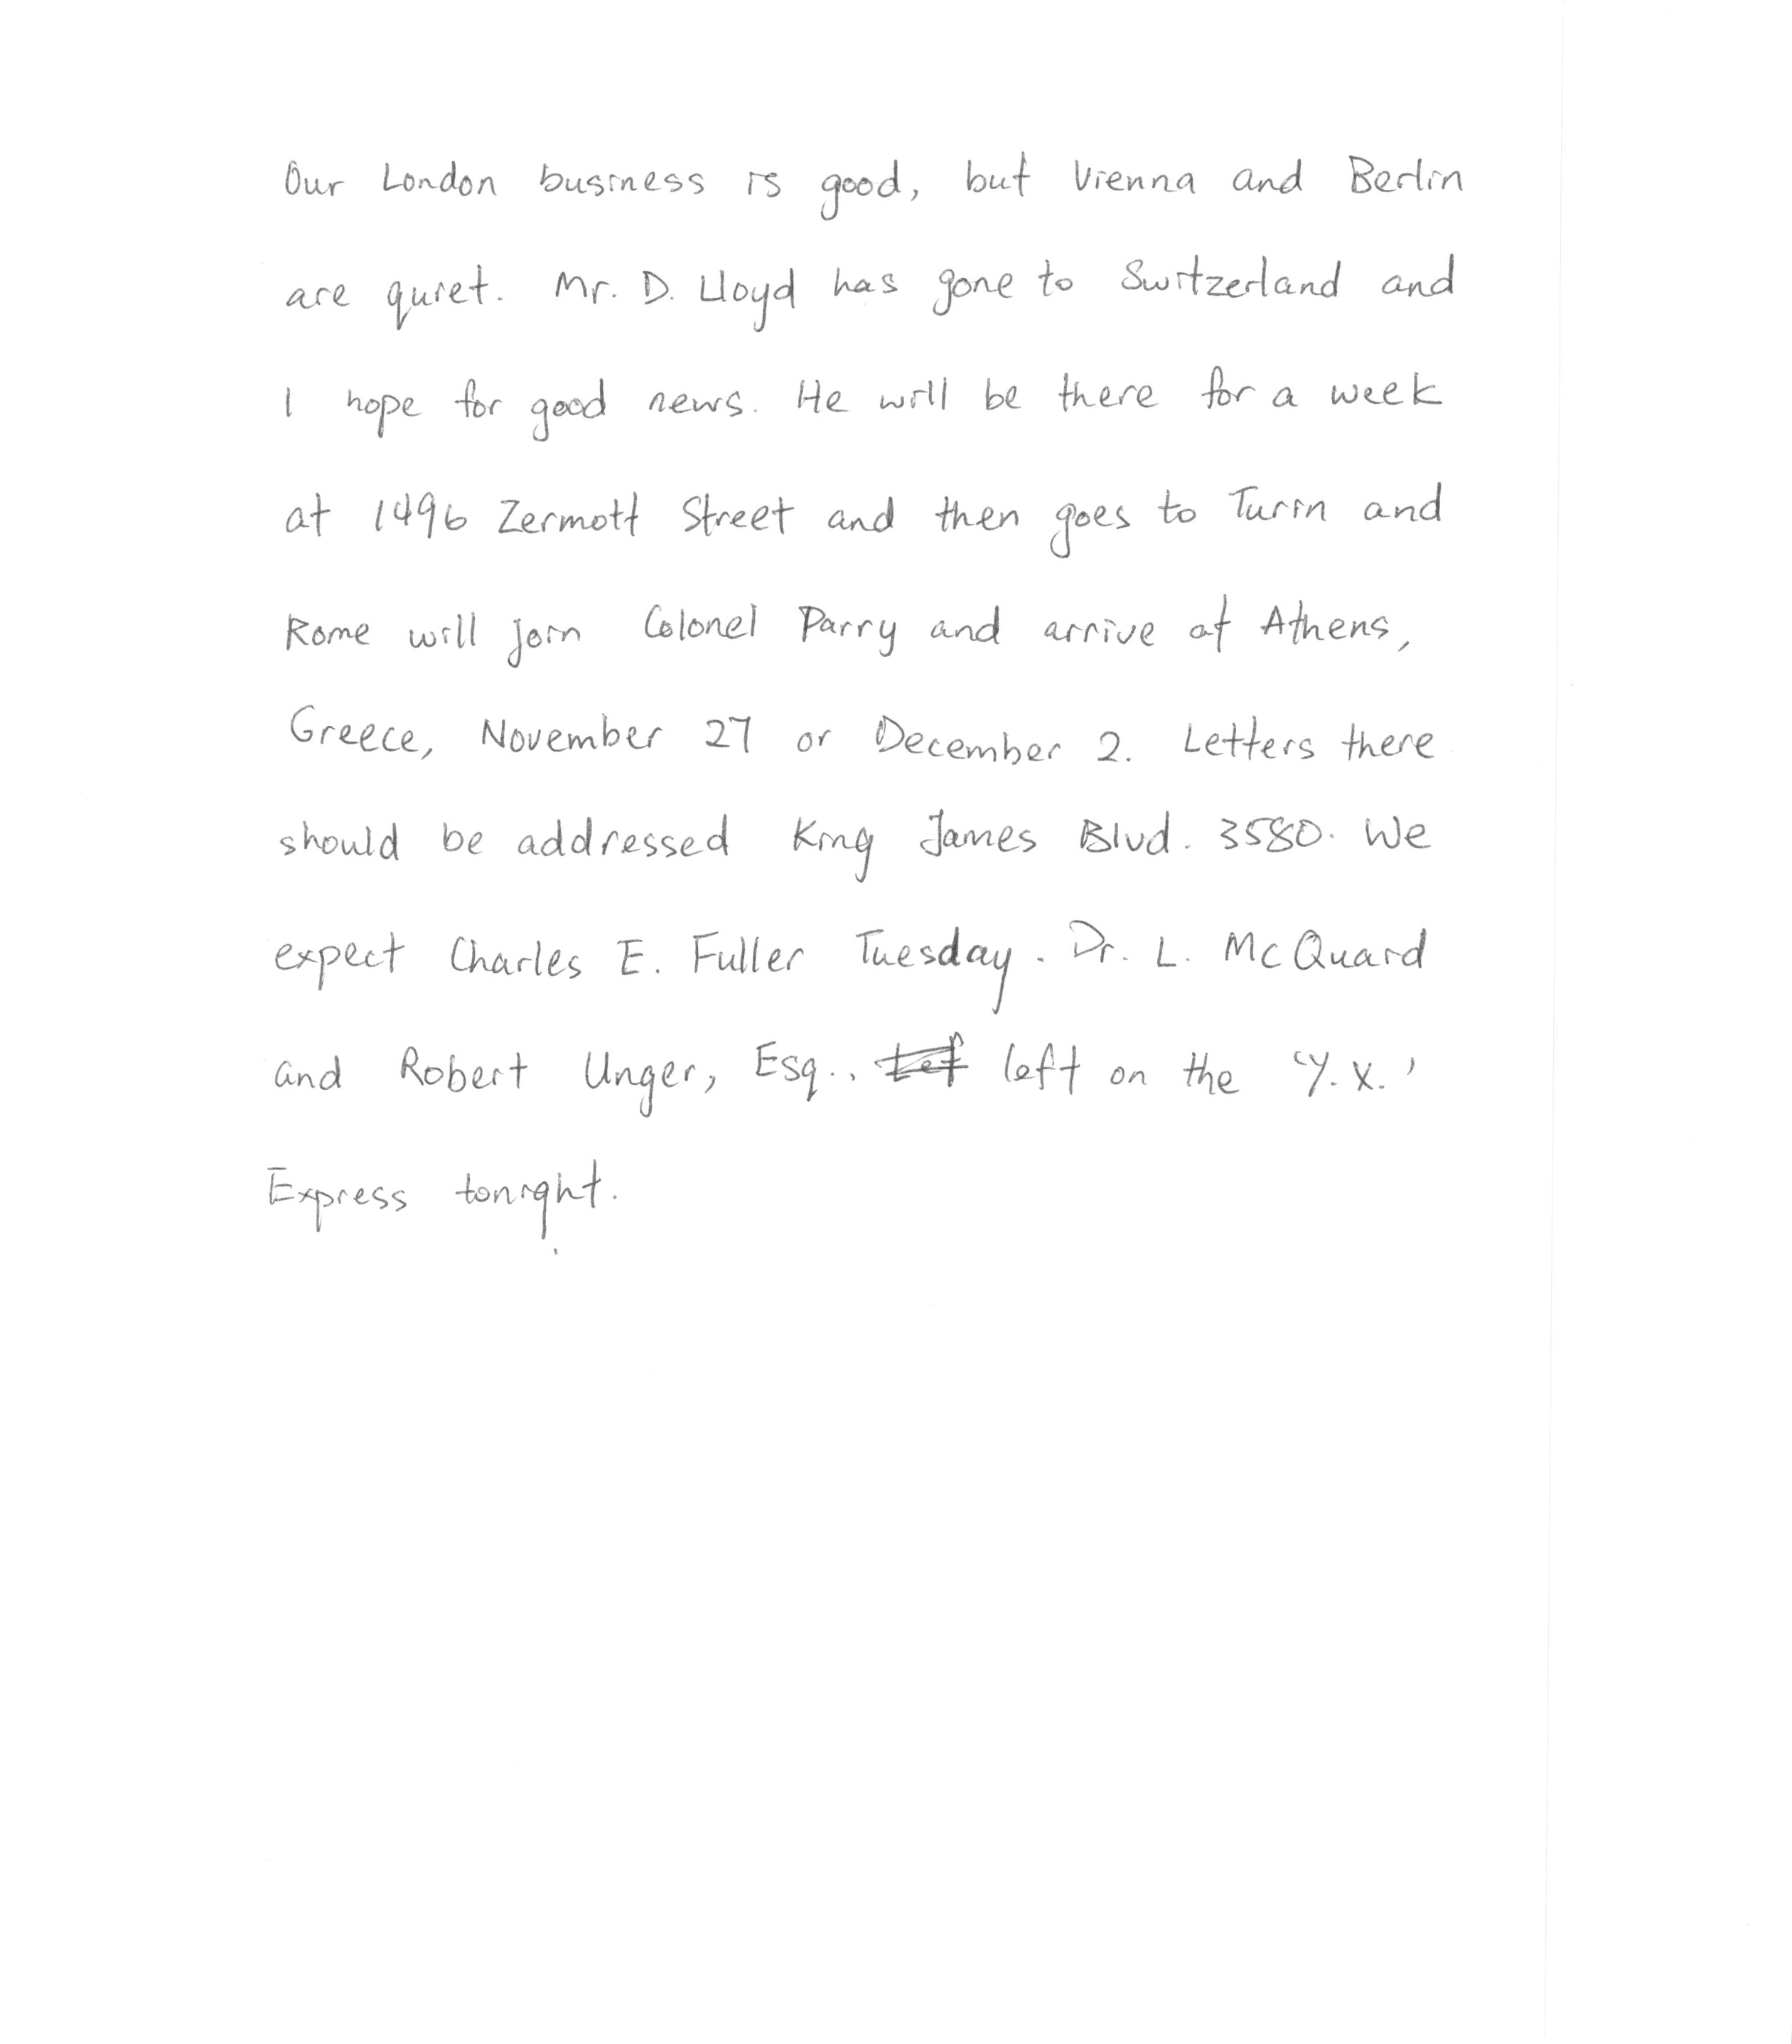 Our London business is good, but Vienna and Berlin
are quiet. Mr. D. Lloyd has gone to Switzerland and
I hope for good news. He will be there for a week
at 1496 Zermott Street and then goes to Turin and
Rome will join Colonel Parry and arrive at Athens,
Greece, November 27 or December 2. Letters there
should be addressed King James Blvd. 3580. We
expect Charles E. Fuller Tuesday. Dr. L. McQuard
and Robert Unger, Esq., left on the 'Y.X.'
Express tonight.